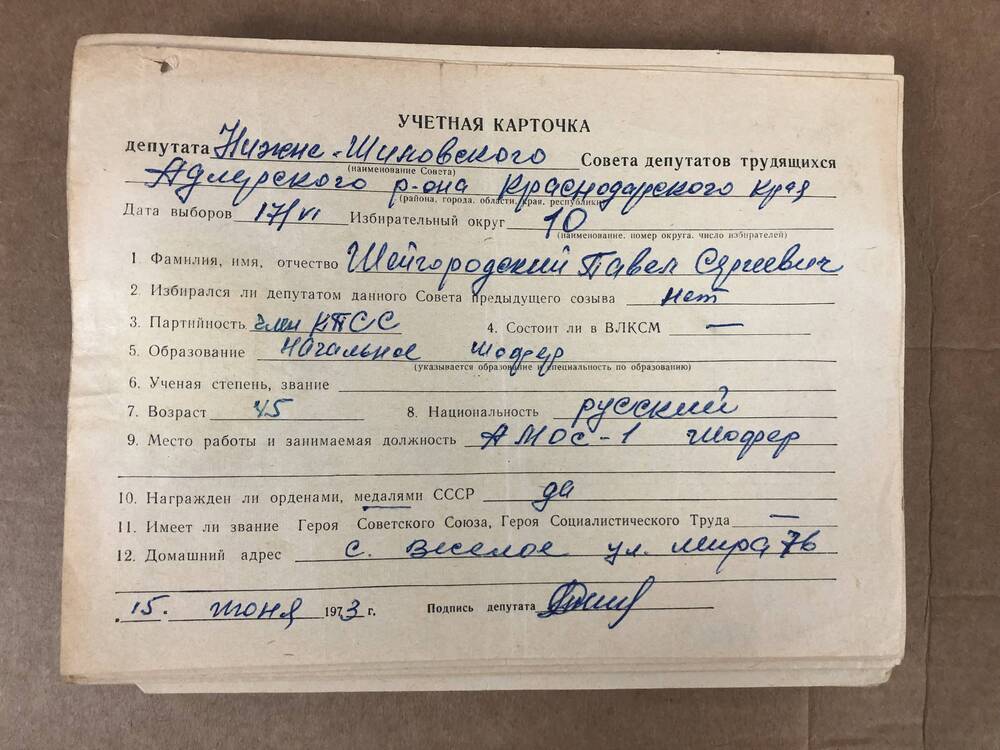 УЧЕТНАЯ КАРТОЧКА
депутата Нижне-Шиловского Совета депутатов трудящихся
(наименование Совета)
Адлерского р-она Краснодарского края
(района, города, области, края, республики)
Дата выборов 17/VI Избирательный округ 10
(наименование, номер округа, число избирателей)
1. Фамилия, имя, отчество Шейгородский Павел Сергеевич
2. Избирался ли депутатом данного Совета предыдущего созыва нет
3. Партийность член КПСС 4. Состоит ли в ВЛКСМ —
5. Образование Начальное шофер
(указывается образование и специальность по образованию)
6. Ученая степень, звание
7. Возраст 45 8. Национальность русский
9. Место работы и занимаемая должность АМОС-1 шофер
10. Награжден ли орденами, медалями СССР да
11. Имеет ли звание Героя Советского Союза, Героя Социалистического Труда —
12. Домашний адрес с. Веселое ул. Мира
15. июня 1973 г. Подпись депутата